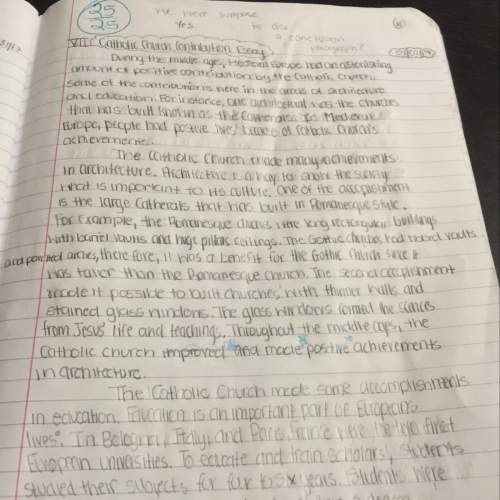 25
25
We were suppose
Yes. to do
a conclusion
paragraph?
VII. Catholic Church Contribution Essay
During the middle ages, Medieval Europe had an
amount of positive contribution by the Catholic Church.
Some of the contributions were in the areas of architecture
and education. For instance, one architectual was the churches
that was built known as the Catherals. In Medieval
Europe, people had postive lives because of Catholic Church's
achievements.
The Catholic Church made many achievements
in architecture. Architecture is a way to show the society
what is important to its culture. One of the accomplishment
is the large Catherals that was built in Romanesque style.
For example, the Romanesque churchs were long rectangular buildings
with barrel vaults and high ceilings. The Gothic churches had ribbed vaults
and pointed arches, therefore, it was a benefit for the Gothic church since it
was taller than the Romanesque church. The second accomplishment
made it possible to built churches with thinner walls and
stained glass windows. The glass windows formed the scences
from Jesus' life and teachings. Throughout the middle ages, the
Catholic church improved and made positive achievements
in architecture.
The Catholic Church made some accomplishments
in education. Education is an important part of Europeans
lives. In Bologna, Italy, and Paris, France were the two first
European universities. To educate and train scholars, students
studied their subjects for four to six years. Students were